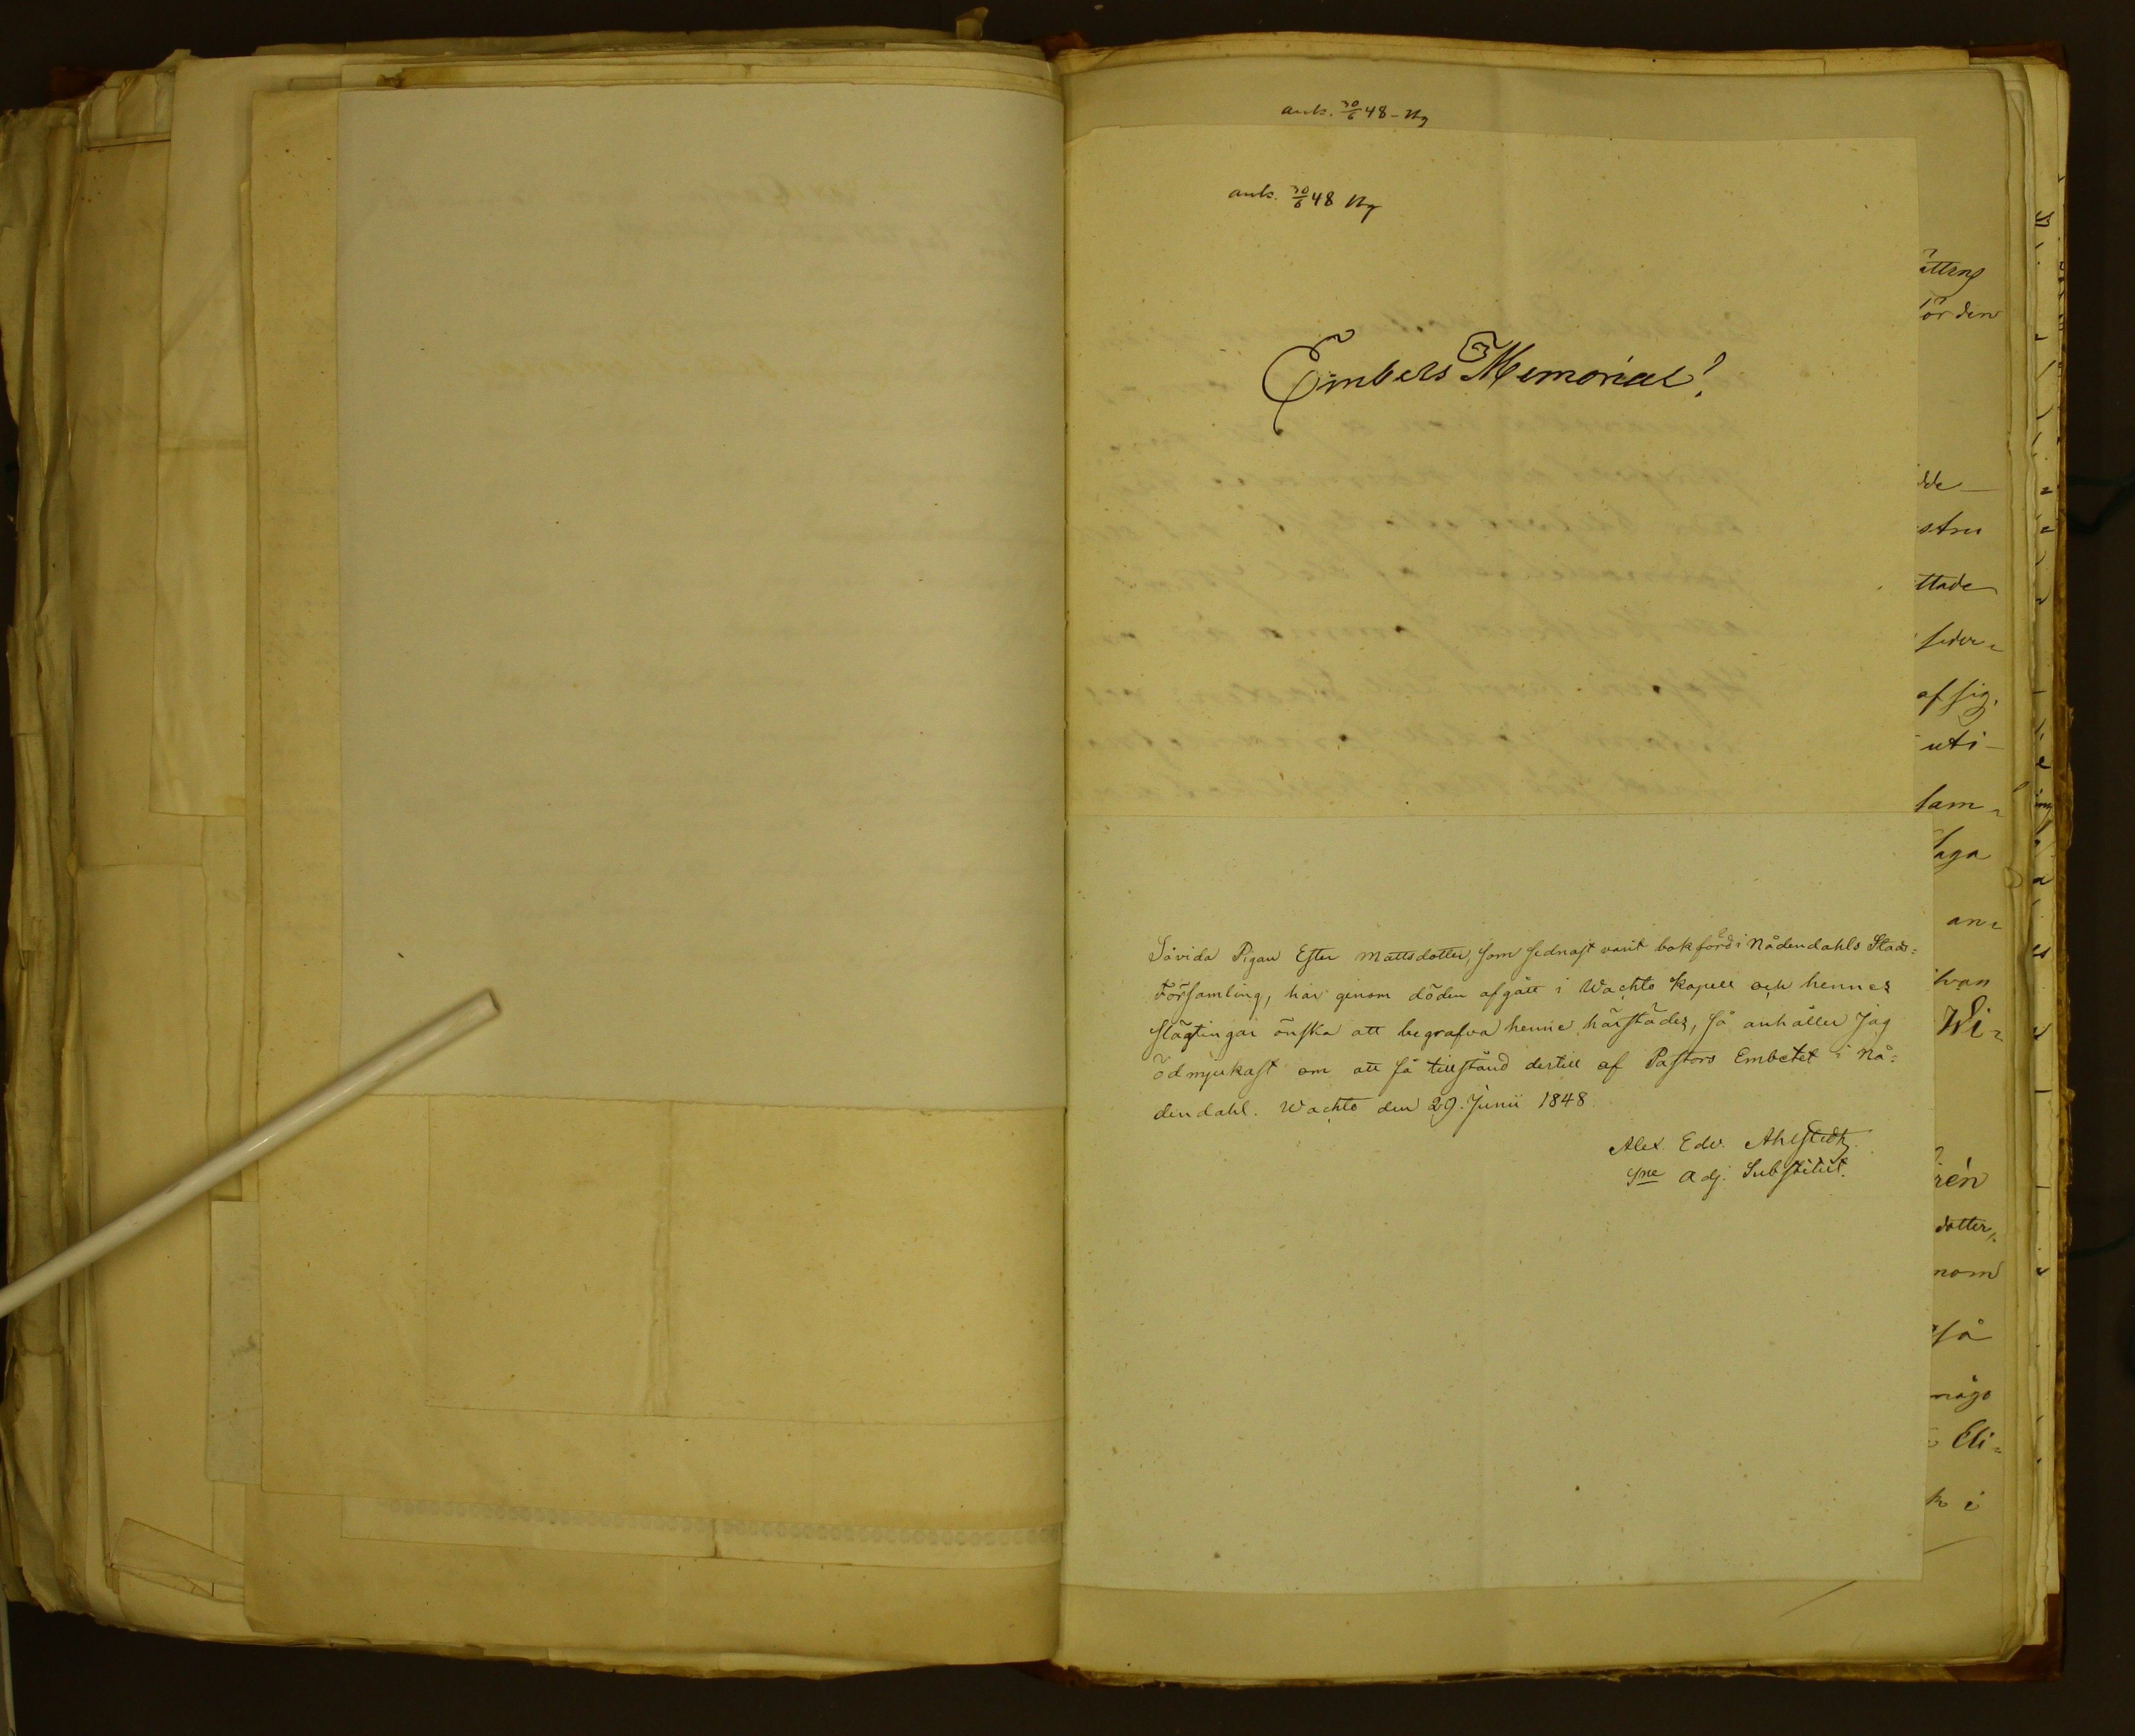 ank. 30/6 48 - Ng
ank. 30/6 48 Ng
Embets Memorial!
Såvida Pigan Ester Mattsdotter, som sednast varit bokförd i Nådendahls Stads=
Församling, har genom döden afgått i Wachto Kapell och hennes
slägtingar önska att begrafva henne härstädes, så anhåller jag
ödmjukast om att få tillstånd dertill af Pastors Embetet i Nå=
dendahl. Wachto den 29. Junii 1848
Alex. Edv. Ahlstedt.
Adj. Substitut.
för den
dde
stru
ttade
af sig.
uti
sam=
laga
an=
Wi=
rén
dotter,
nom
så
Eli=
i